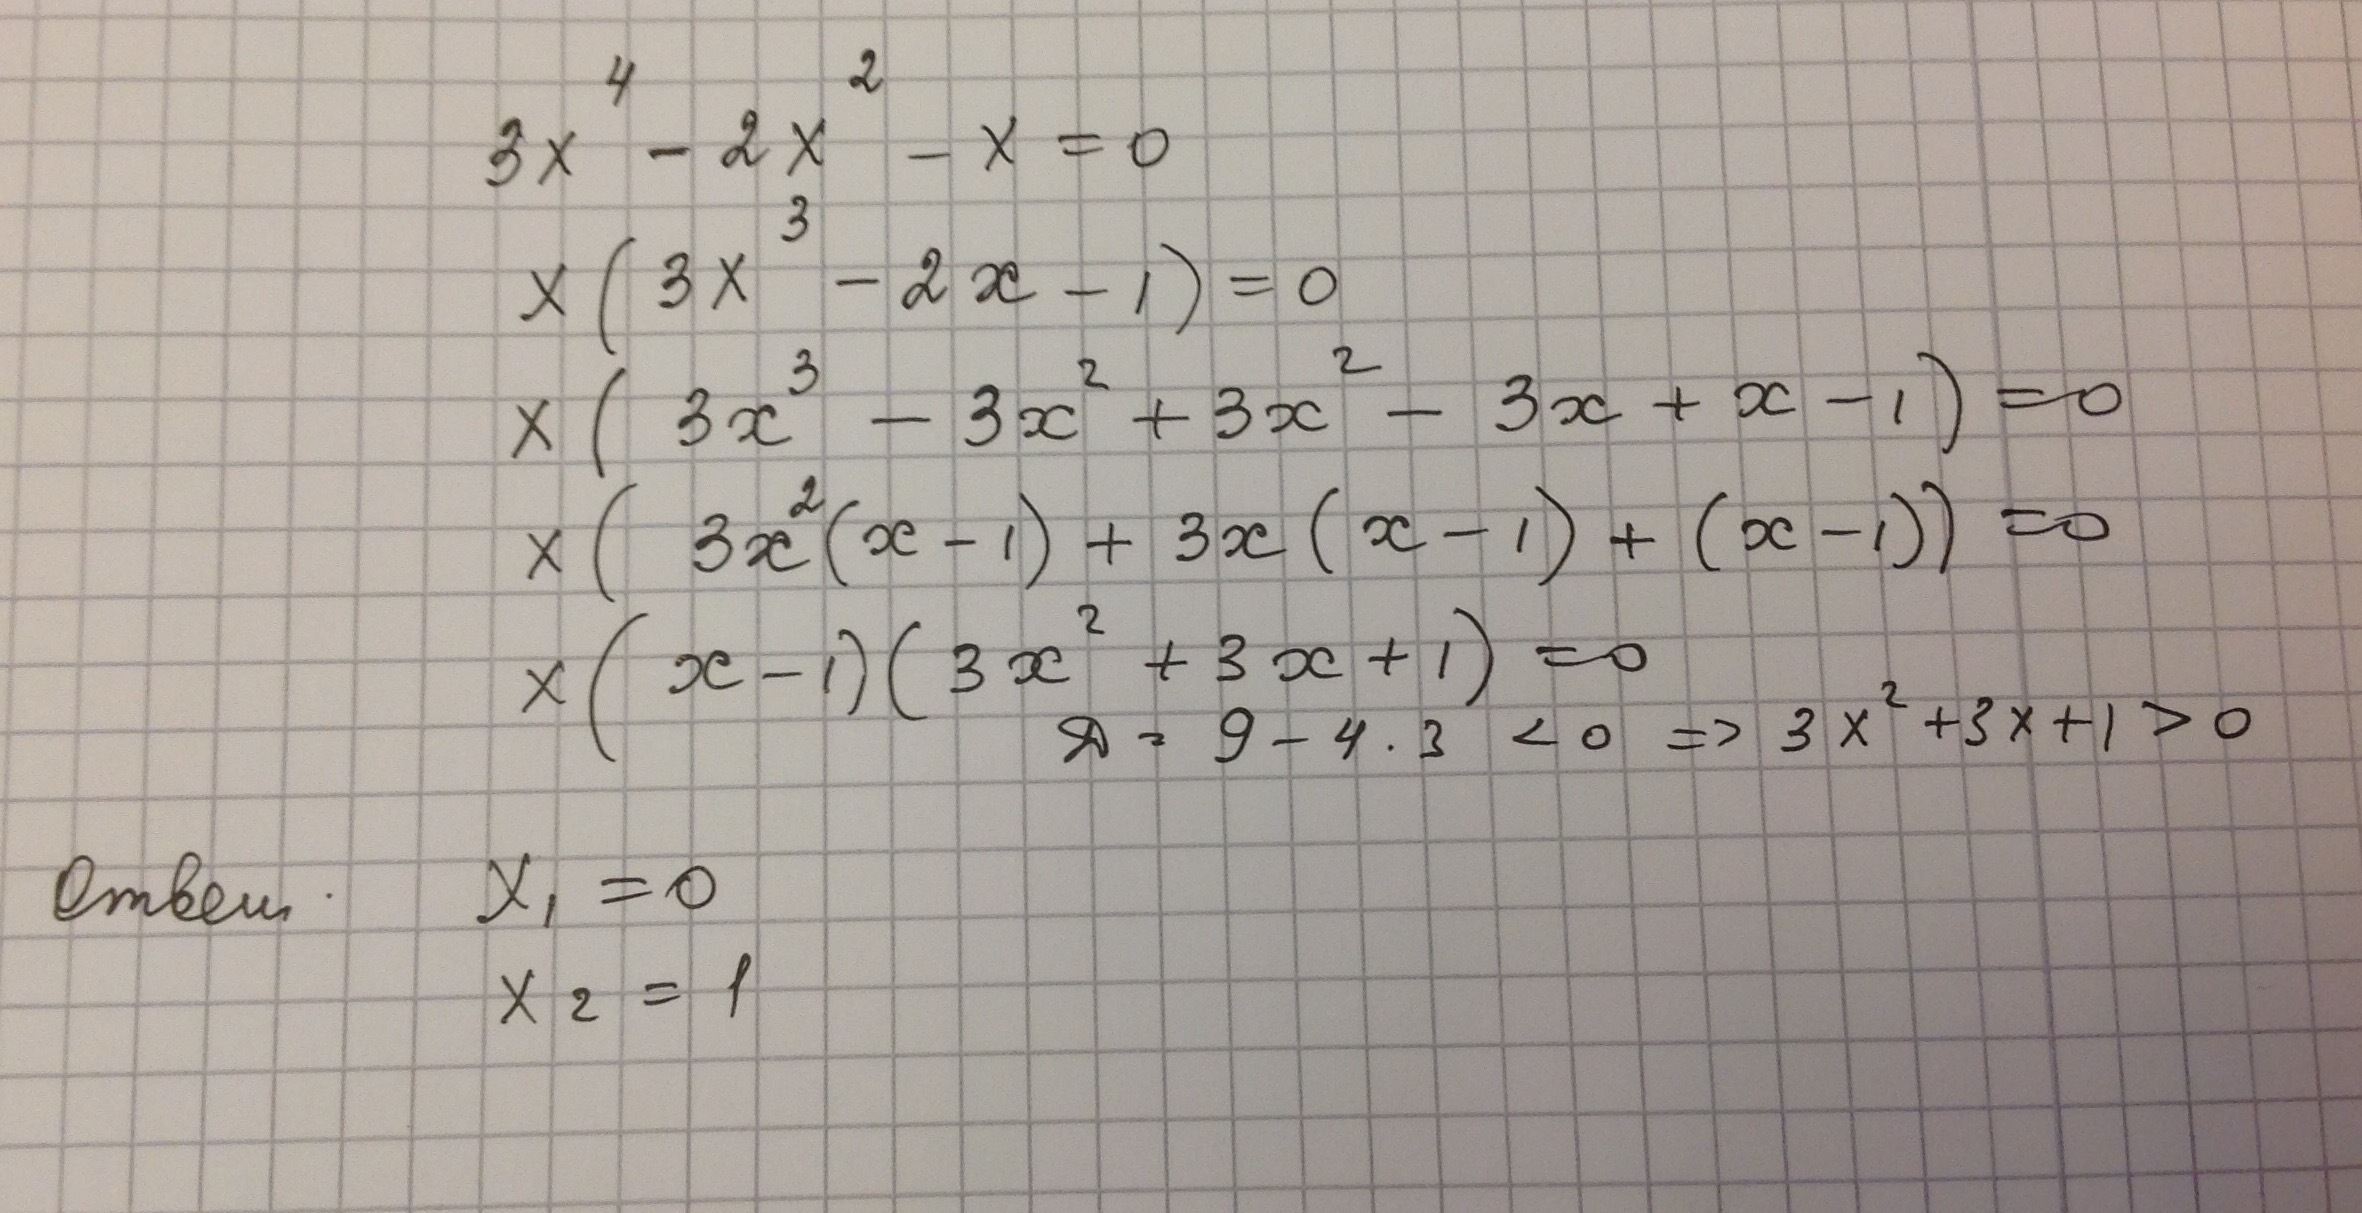 3x⁴ - 2x² - x = 0
x(3x³ - 2x - 1) = 0
x(3x³ - 3x² + 3x² - 3x + x - 1) = 0
x(3x²(x - 1) + 3x(x - 1) + (x - 1)) = 0
x(x - 1)(3x² + 3x + 1) = 0
D = 9 - 4 · 3 < 0 => 3x² + 3x + 1 > 0
Ответ. x₁ = 0
x₂ = 1